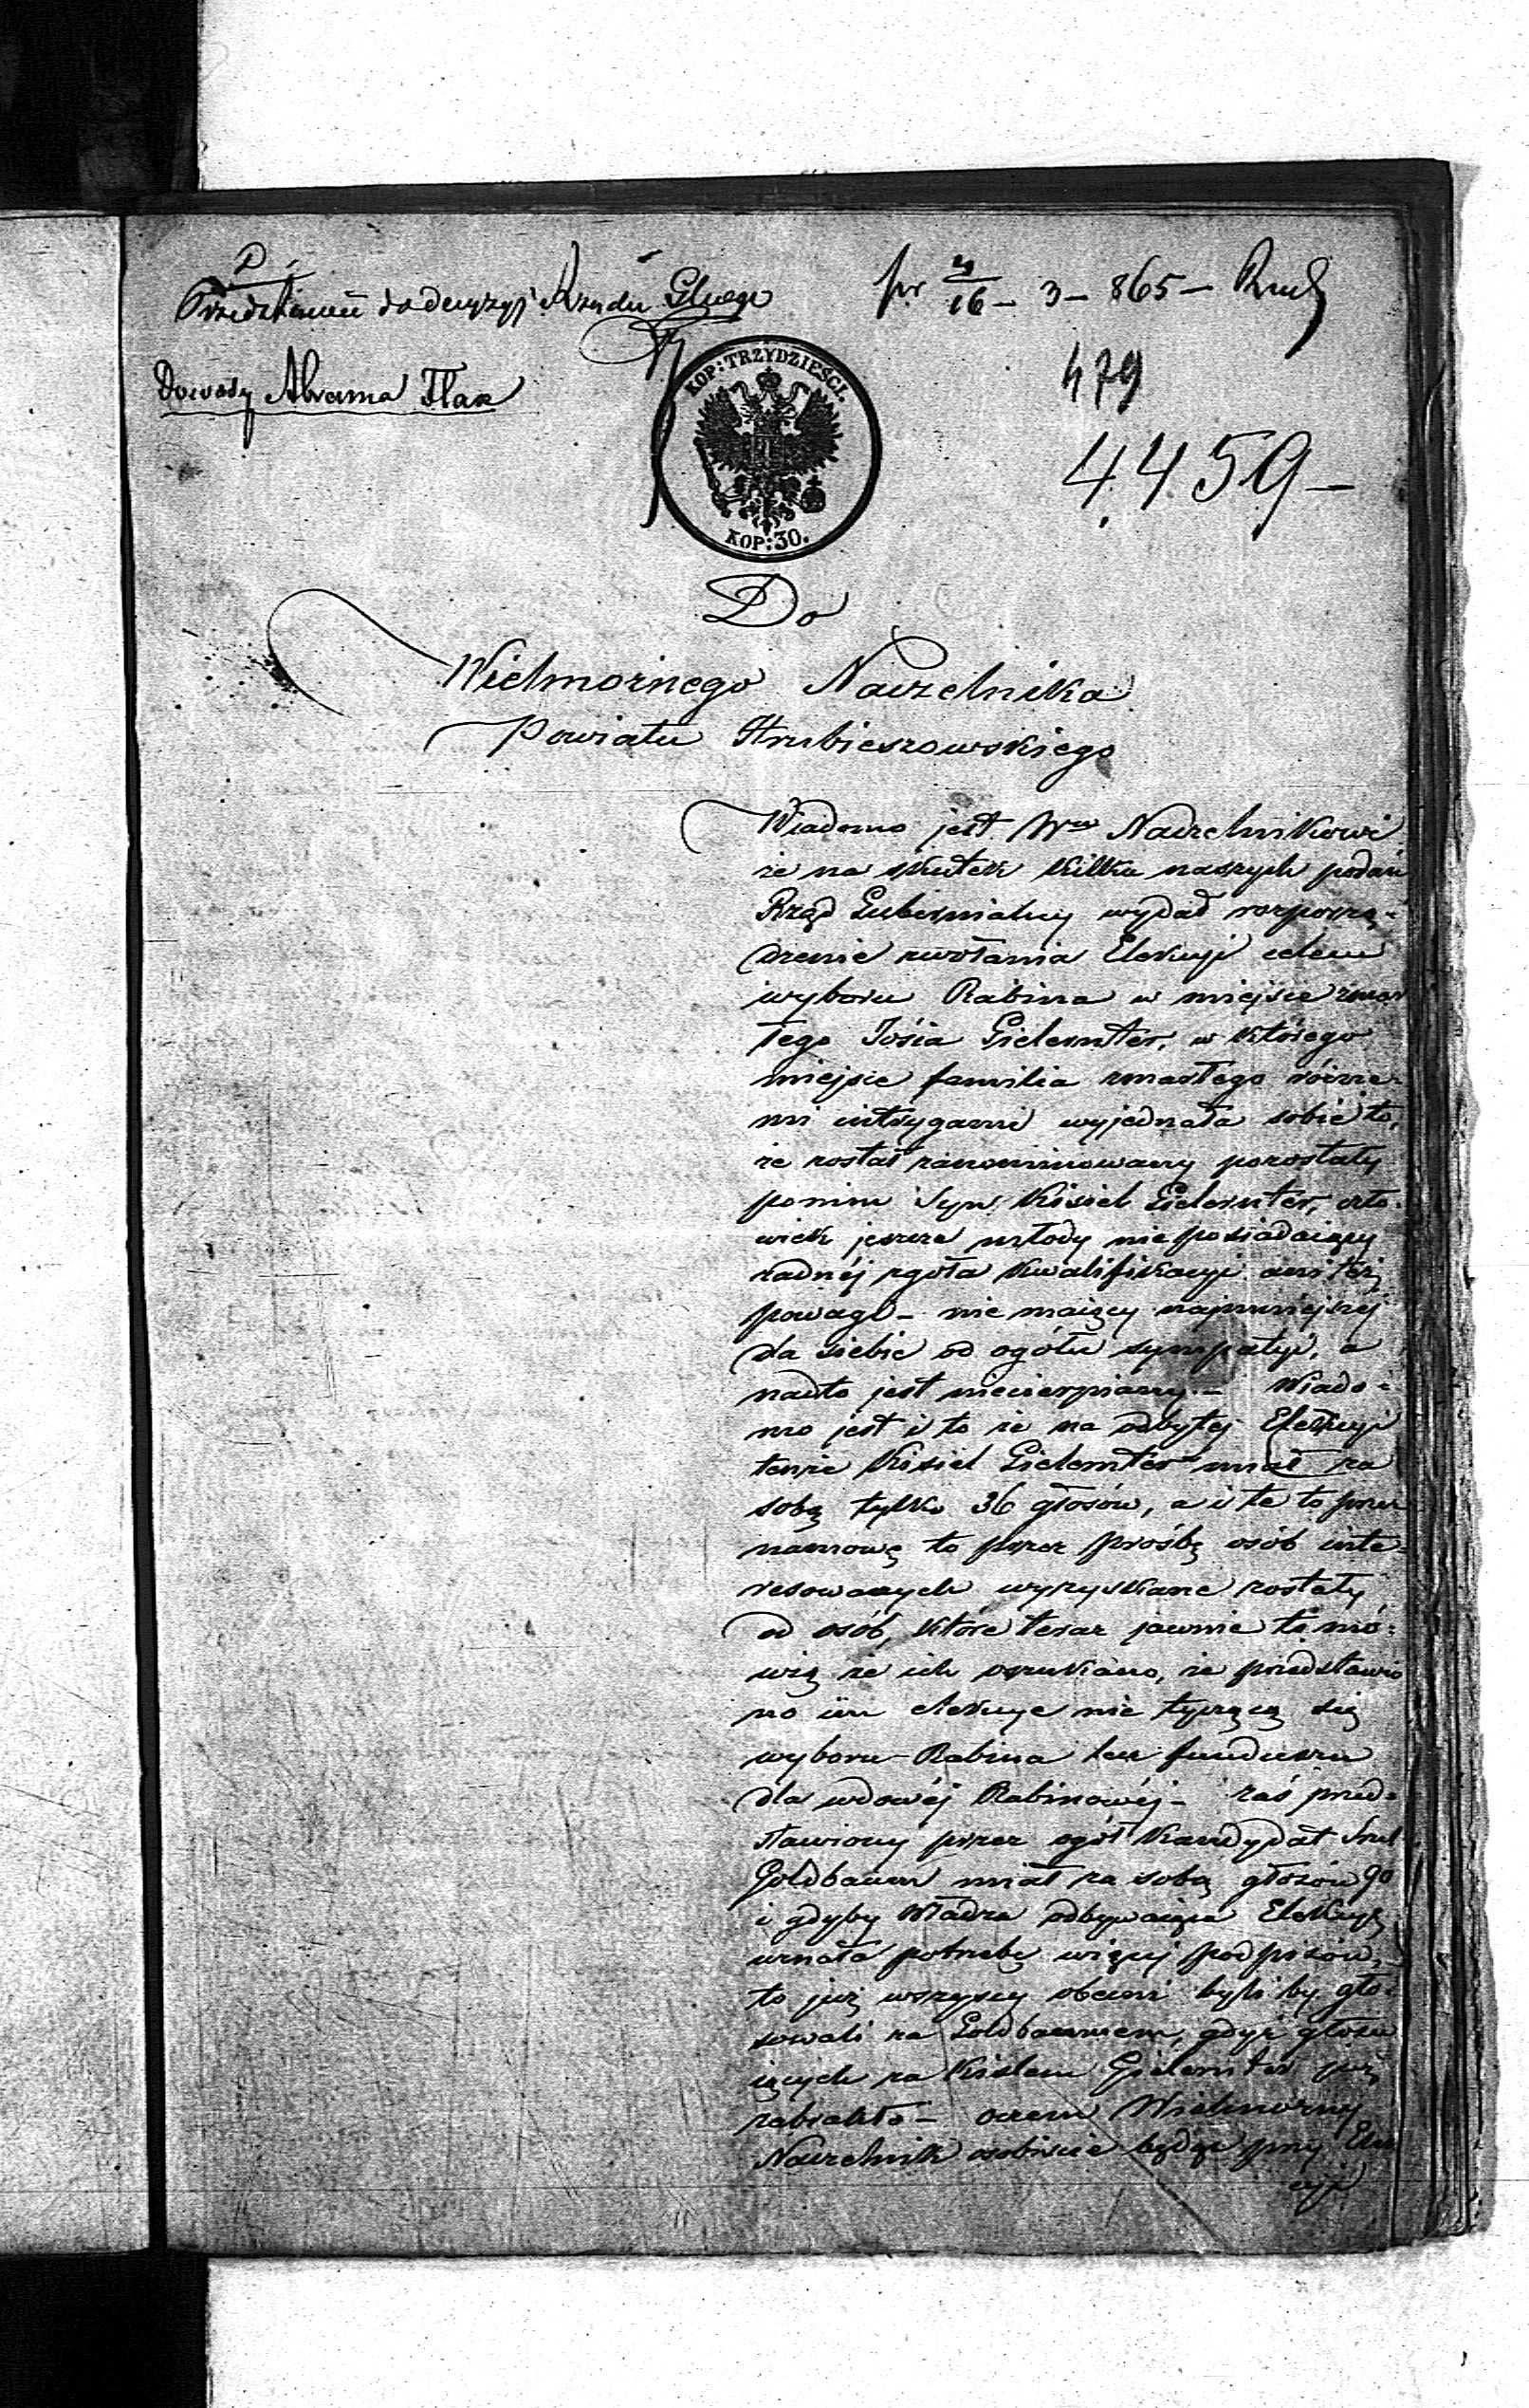 pr 4/16 – 3 – 865 –
do decyzyi Rządu
Dowody Abrama Flax
479
4459 –
KOP: TRZYDZIEŚCI.
KOP: 30.
Do
Wielmożnego Naczelnika
Powiatu Hrubieszowskiego
Wiadomo jest Wmu Naczelnikowi
że na skutek kilku naszych podań
Rząd Gubernialny wydał rozporzą-
dzenie zwołania Elekcyi celem
wyboru Rabina w miejsce zmar
łego Jósia Gielernter, w którego
miejsce familia zmarłego różne-
mi intrygami wyjednała sobie to,
że został zanominowany pozostały
ponim Syn Kisiel Gielernter, czło-
wiek jeszcze młody nieposiadaiący
żadnéj zgoła kwalifikacyi ani też
powagi – nie maiący najmniejszej
dla siebie od ogółu sympatyi, a
nadto jest niecierpiany. – Wiado-
mo jest i to że na odbytej Elekcyi
tenże Kisiel Gielernter miał za
sobą tylko 36 głosów, a i te to przez
namowę to przez prośbę osób inte-
resowanych wyzyskane zostały
od osób, które teraz jawnie to mó-
wią że ich oszukano, że przedstawio
no im elekcye nie tyczącą się
wyboru Rabina lecz funduszu
dla wdowéj Rabinowéj – zaś przed-
stawiony przez ogół Kandydat Srul
Goldbaum miał za sobą głosów 90
i gdyby Władza odbywaiąca Elekcyą
uznała potrzebę więcej podpisów,
to już wszyscy obecni byli by gło-
sowali za Goldbaumem, gdyż głosu
iących za Kislem Gielernter już
zabrakło – oczem Wielmożny
Naczelnik osobiście będąc przy Elek
cyi